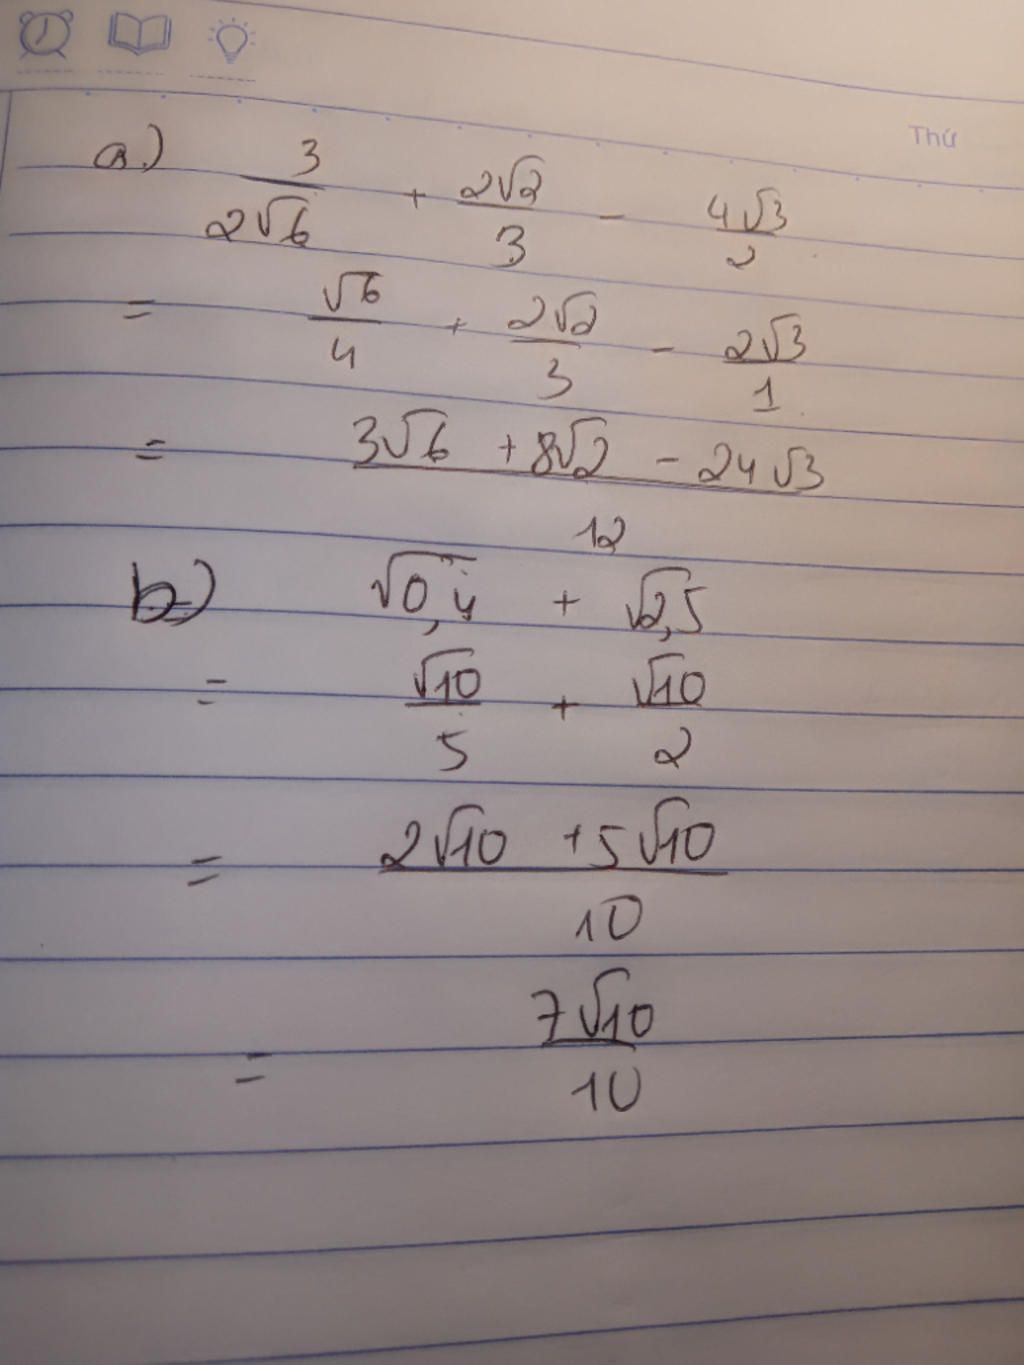 Thứ
a.) 3/(2√6) + 2√2/3 - 4√3/2
= √6/4 + 2√2/3 - 2√3/1
= (3√6 + 8√2 - 24√3)/12
b) √0,4 + √2,5
= √10/5 + √10/2
= (2√10 + 5√10)/10
= 7√10/10